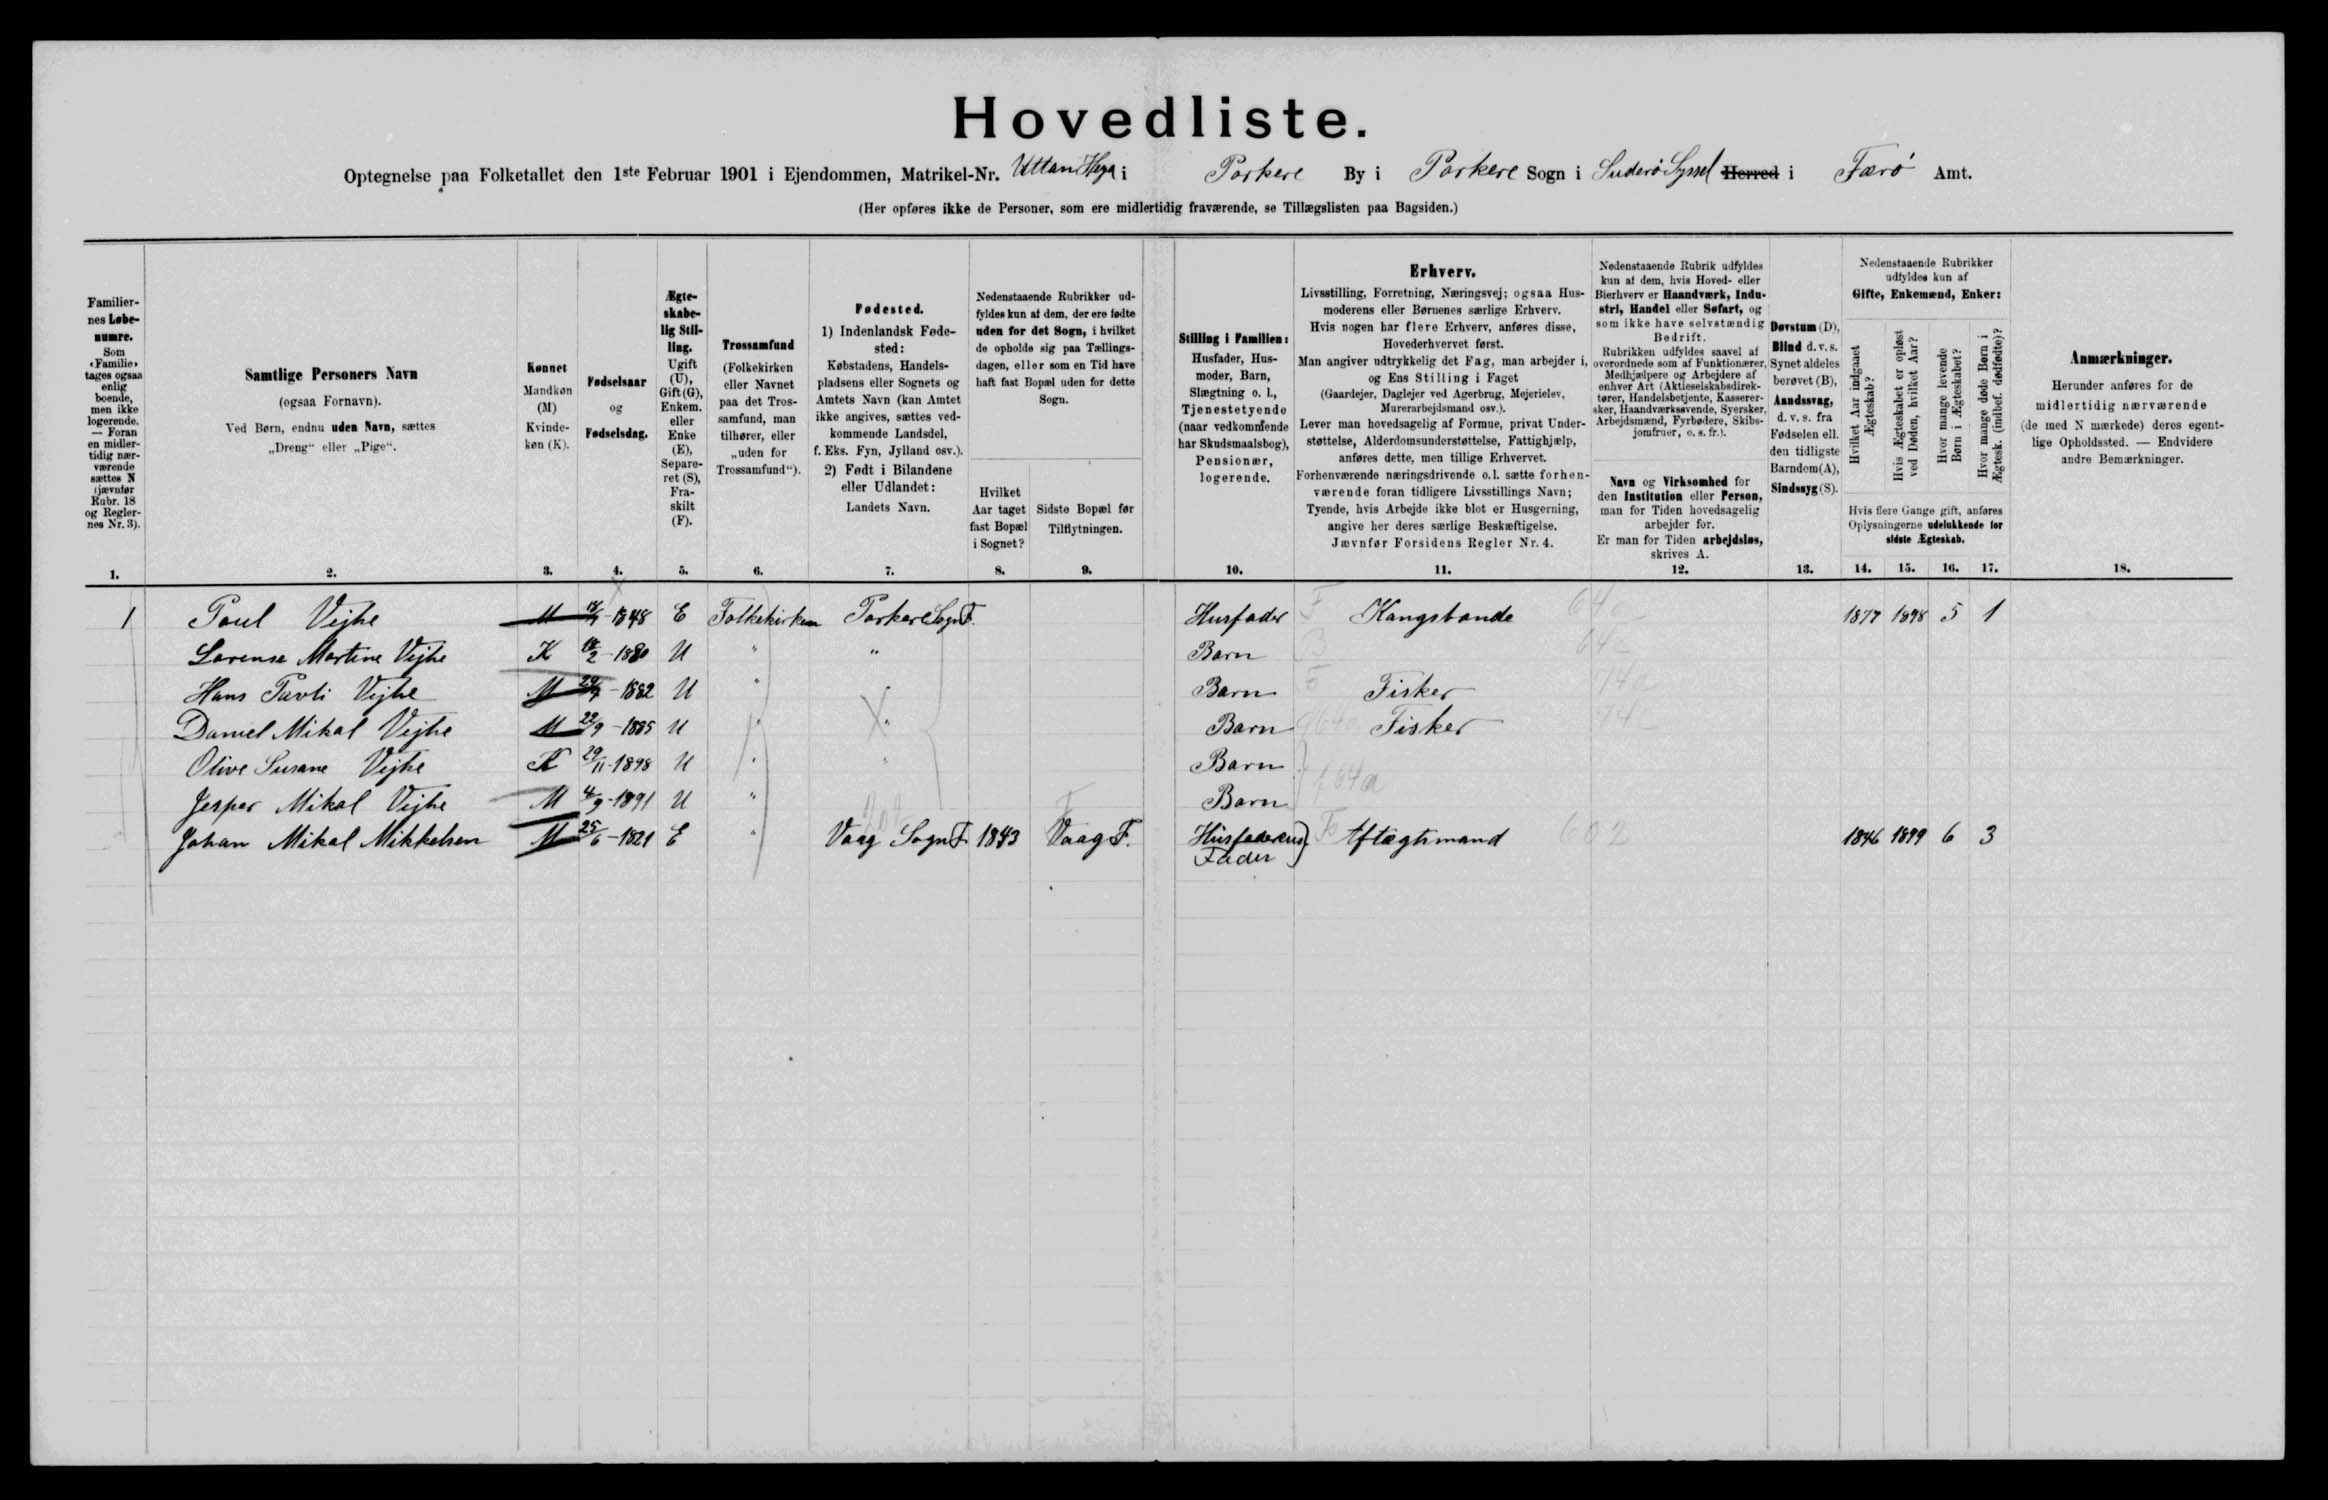 Hovedliste.
Optegnelse paa Folketallet den 1ste Februar 1901 i Ejendommen, Matrikel-Nr. Uttan Hega i Porkere By i Porkere Sogn i Suderø Syssel Herred i Færø Amt.
(Her opføres ikke de Personer, som ere midlertidig fraværende, se Tillægslisten paa Bagsiden.)
Familier-
nes Løbe-
numre.
Som
«Familie»
tages ogsaa
enlig
boende,
men ikke
logerende.
— Foran
en midler-
tidig nær-
værende
sættes N
(jævnfør
Rubr. 18
og Regler-
nes Nr. 3).
1.
Samtlige Personers Navn
(ogsaa Fornavn).
Ved Børn, endnu uden Navn, sættes
„Dreng“ eller „Pige“.
2.
Kønnet
Mandkøn
(M)
Kvinde-
køn (K).
3.
Fødselsaar
og
Fødselsdag.
4.
Ægte-
skabe-
lig Stil-
ling.
Ugift
(U),
Gift (G),
Enkem.
eller
Enke
(E),
Separe-
ret (S),
Fra-
skilt
(F).
5.
Trossamfund
(Folkekirken
eller Navnet
paa det Tros-
samfund, man
tilhører, eller
„uden for
Trossamfund“).
6.
Fødested.
1) Indenlandsk Føde-
sted:
Købstadens, Handels-
pladsens eller Sognets og
Amtets Navn (kan Amtet
ikke angives, sættes ved-
kommende Landsdel,
f. Eks. Fyn, Jylland osv.).
2) Født i Bilandene
eller Udlandet:
Landets Navn.
7.
Nedenstaaende Rubrikker ud-
fyldes kun af dem, der ere fødte
uden for det Sogn, i hvilket
de opholde sig paa Tællings-
dagen, eller som en Tid have
haft fast Bopæl uden for dette
Sogn.
Hvilket
Aar taget
fast Bopæl
i Sognet?
8.
Sidste Bopæl før
Tilflytningen.
9.
Stilling i Familien:
Husfader, Hus-
moder, Barn,
Slægtning o. l.,
Tjenestetyende
(naar vedkommende
har Skudsmaalsbog),
Pensionær,
logerende.
10.
Erhverv.
Livsstilling, Forretning, Næringsvej; ogsaa Hus-
moderens eller Børnenes særlige Erhverv.
Hvis nogen har flere Erhverv, anføres disse,
Hovederhvervet først.
Man angiver udtrykkelig det Fag, man arbejder i,
og Ens Stilling i Faget
(Gaardejer, Daglejer ved Agerbrug, Mejerielev,
Murerarbejdsmand osv.).
Lever man hovedsagelig af Formue, privat Under-
støttelse, Alderdomsunderstøttelse, Fattighjælp,
anføres dette, men tillige Erhvervet.
Forhenværende næringsdrivende o. l. sætte forhen-
værende foran tidligere Livsstillings Navn;
Tyende, hvis Arbejde ikke blot er Husgerning,
angive her deres særlige Beskæftigelse.
Jævnfør Forsidens Regler Nr. 4.
11.
Nedenstaaende Rubrik udfyldes
kun af dem, hvis Hoved- eller
Bierhverv er Haandværk, Indu-
stri, Handel eller Søfart, og
som ikke have selvstændig
Bedrift.
Rubrikken udfyldes saavel af
overordnede som af Funktionærer,
Medhjælpere og Arbejdere af
enhver Art (Aktieselskabsdirek-
tører, Handelsbetjente, Kasserer-
sker, Haandværkssvende, Syersker,
Arbejdsmænd, Fyrbødere, Skibs-
jomfruer, o. s. fr.).
Navn og Virksomhed for
den Institution eller Person,
man for Tiden hovedsagelig
arbejder for.
Er man for Tiden arbejdsløs,
skrives A.
12.
Døvstum (D),
Blind d. v. s.
Synet aldeles
berøvet (B),
Aandssvag,
d. v. s. fra
Fødselen ell.
den tidligste
Barndom (A),
Sindssyg (S).
13.
Nedenstaaende Rubrikker
udfyldes kun af
Gifte, Enkemænd, Enker:
Hvilket Aar indgaaet
Ægteskab?
Hvis Ægteskabet er opløst
ved Døden, hvilket Aar?
Hvor mange levende
Børn i Ægteskabet?
Hvor mange døde Børn i
Ægtesk. (indbef. dødfødte)?
Hvis flere Gange gift, anføres
Oplysningerne udelukkende for
sidste Ægteskab.
14. 15. 16. 17.
Anmærkninger.
Herunder anføres for de
midlertidig nærværende
(de med N mærkede) deres egent-
lige Opholdssted. — Endvidere
andre Bemærkninger.
18.
1 Poul Vejhe M 1848 E Folkekirken Porkere Sogn F. Husfader F Kongsbonde 64 1877 1898 5 1
Lorense Martine Vejhe K 18/2 - 1880 U " " Barn B 64
Hans Pavli Vejhe M - 1882 U " Barn Fisker 74
Daniel Mikal Vejhe M 22/9 - 1885 U " " Barn Fisker 74
Olive Susane Vejhe K 29/11 - 1898 U " " Barn
Jesper Mikal Vejhe M 4/9 - 1891 U " Barn 64a
Johan Mikal Mikkelsen M 25/6 - 1821 E " Vaag Sogn F. 1843 Vaag F. Husfaderens Fader Aftægtsmand 602 1846 1899 6 3